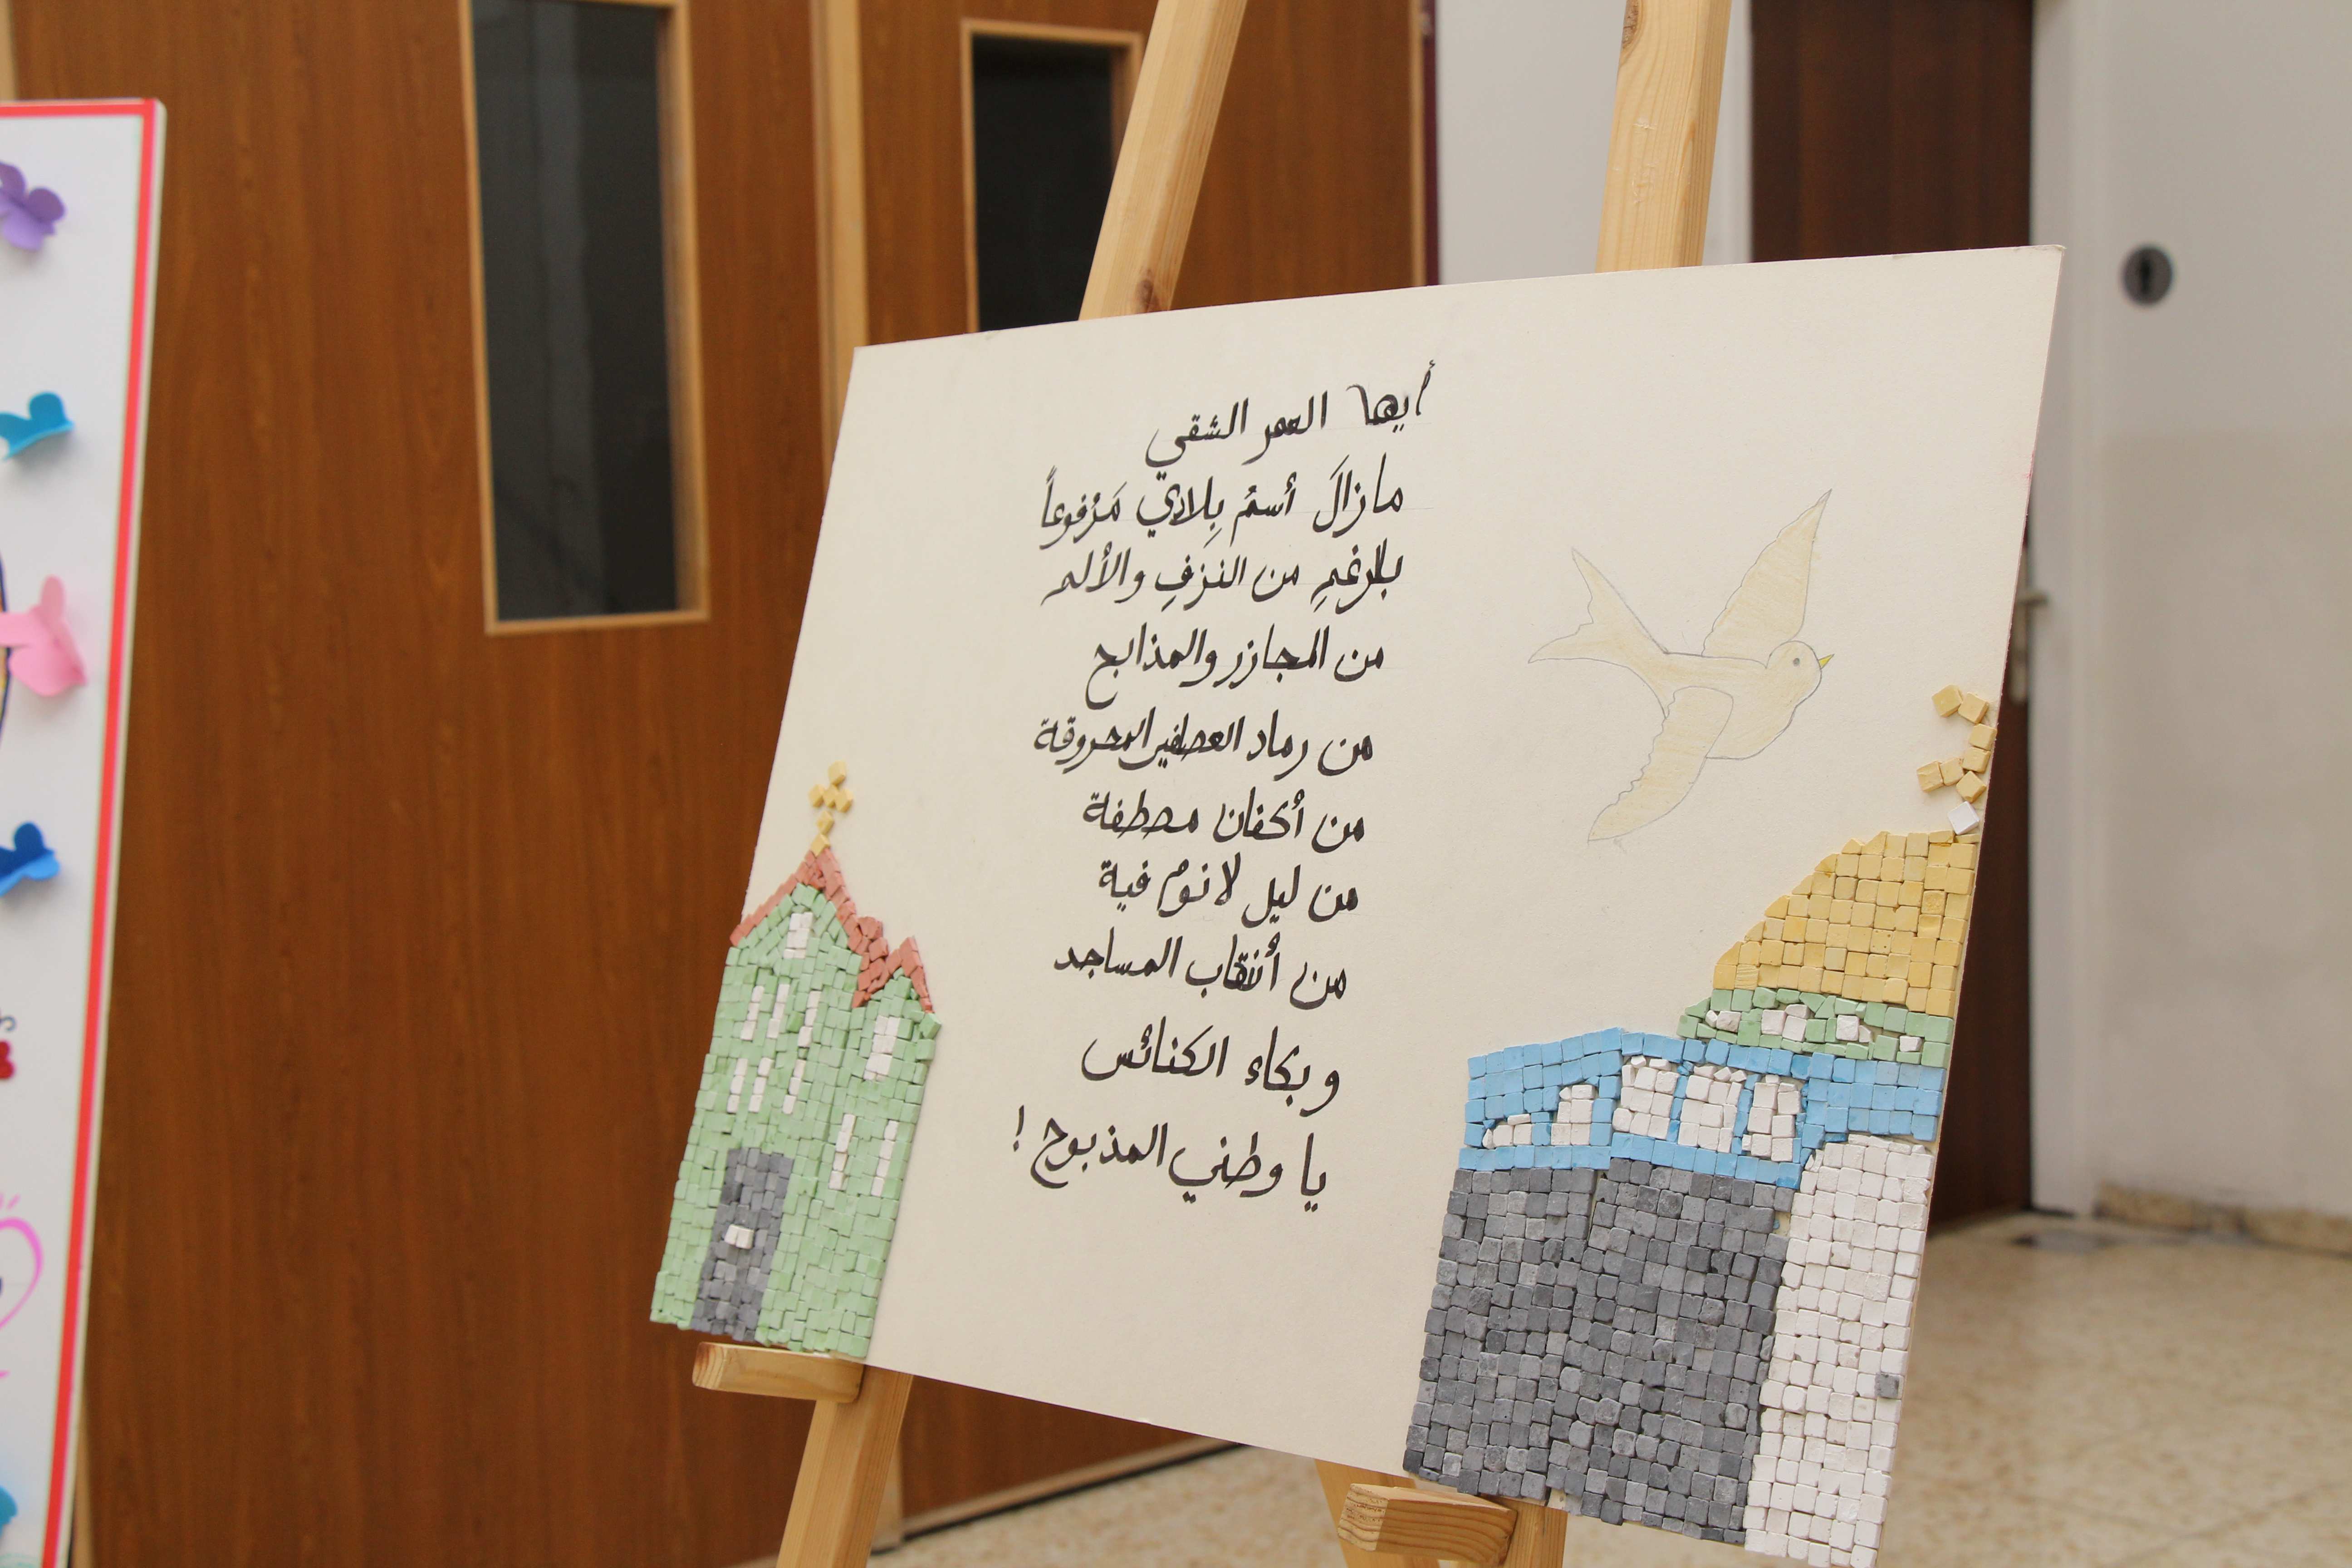 أيها العمر الشقي
مازالَ أسمُ بِلادي مَرْفوعاً
بالرغمِ من النزفِ والألم
من المجازر والمذابح
من رماد العصافير المحروقة
من أكفان مصطفة
من ليل لا نوم فية
من أنقاب المساجد
وبكاء الكنائس
يا وطني المذبوح !